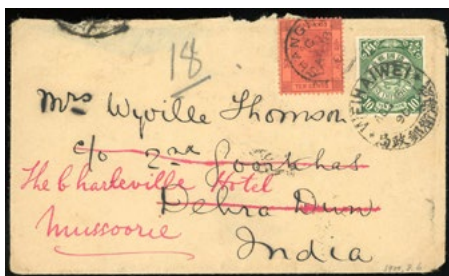 18
TEN CENTS
WEIHAIWEI
10 10
Mrs Wyville Thomson
c/o 2nd Goorkhas
The Charleville Hotel
Dehra Dun
Mussoorie
India